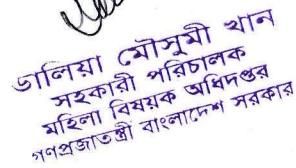 ডালিয়া মৌসুমী খান
সহকারী পরিচালক
মহিলা বিষয়ক অধিদপ্তর
গণপ্রজাতন্ত্রী বাংলাদেশ সরকার